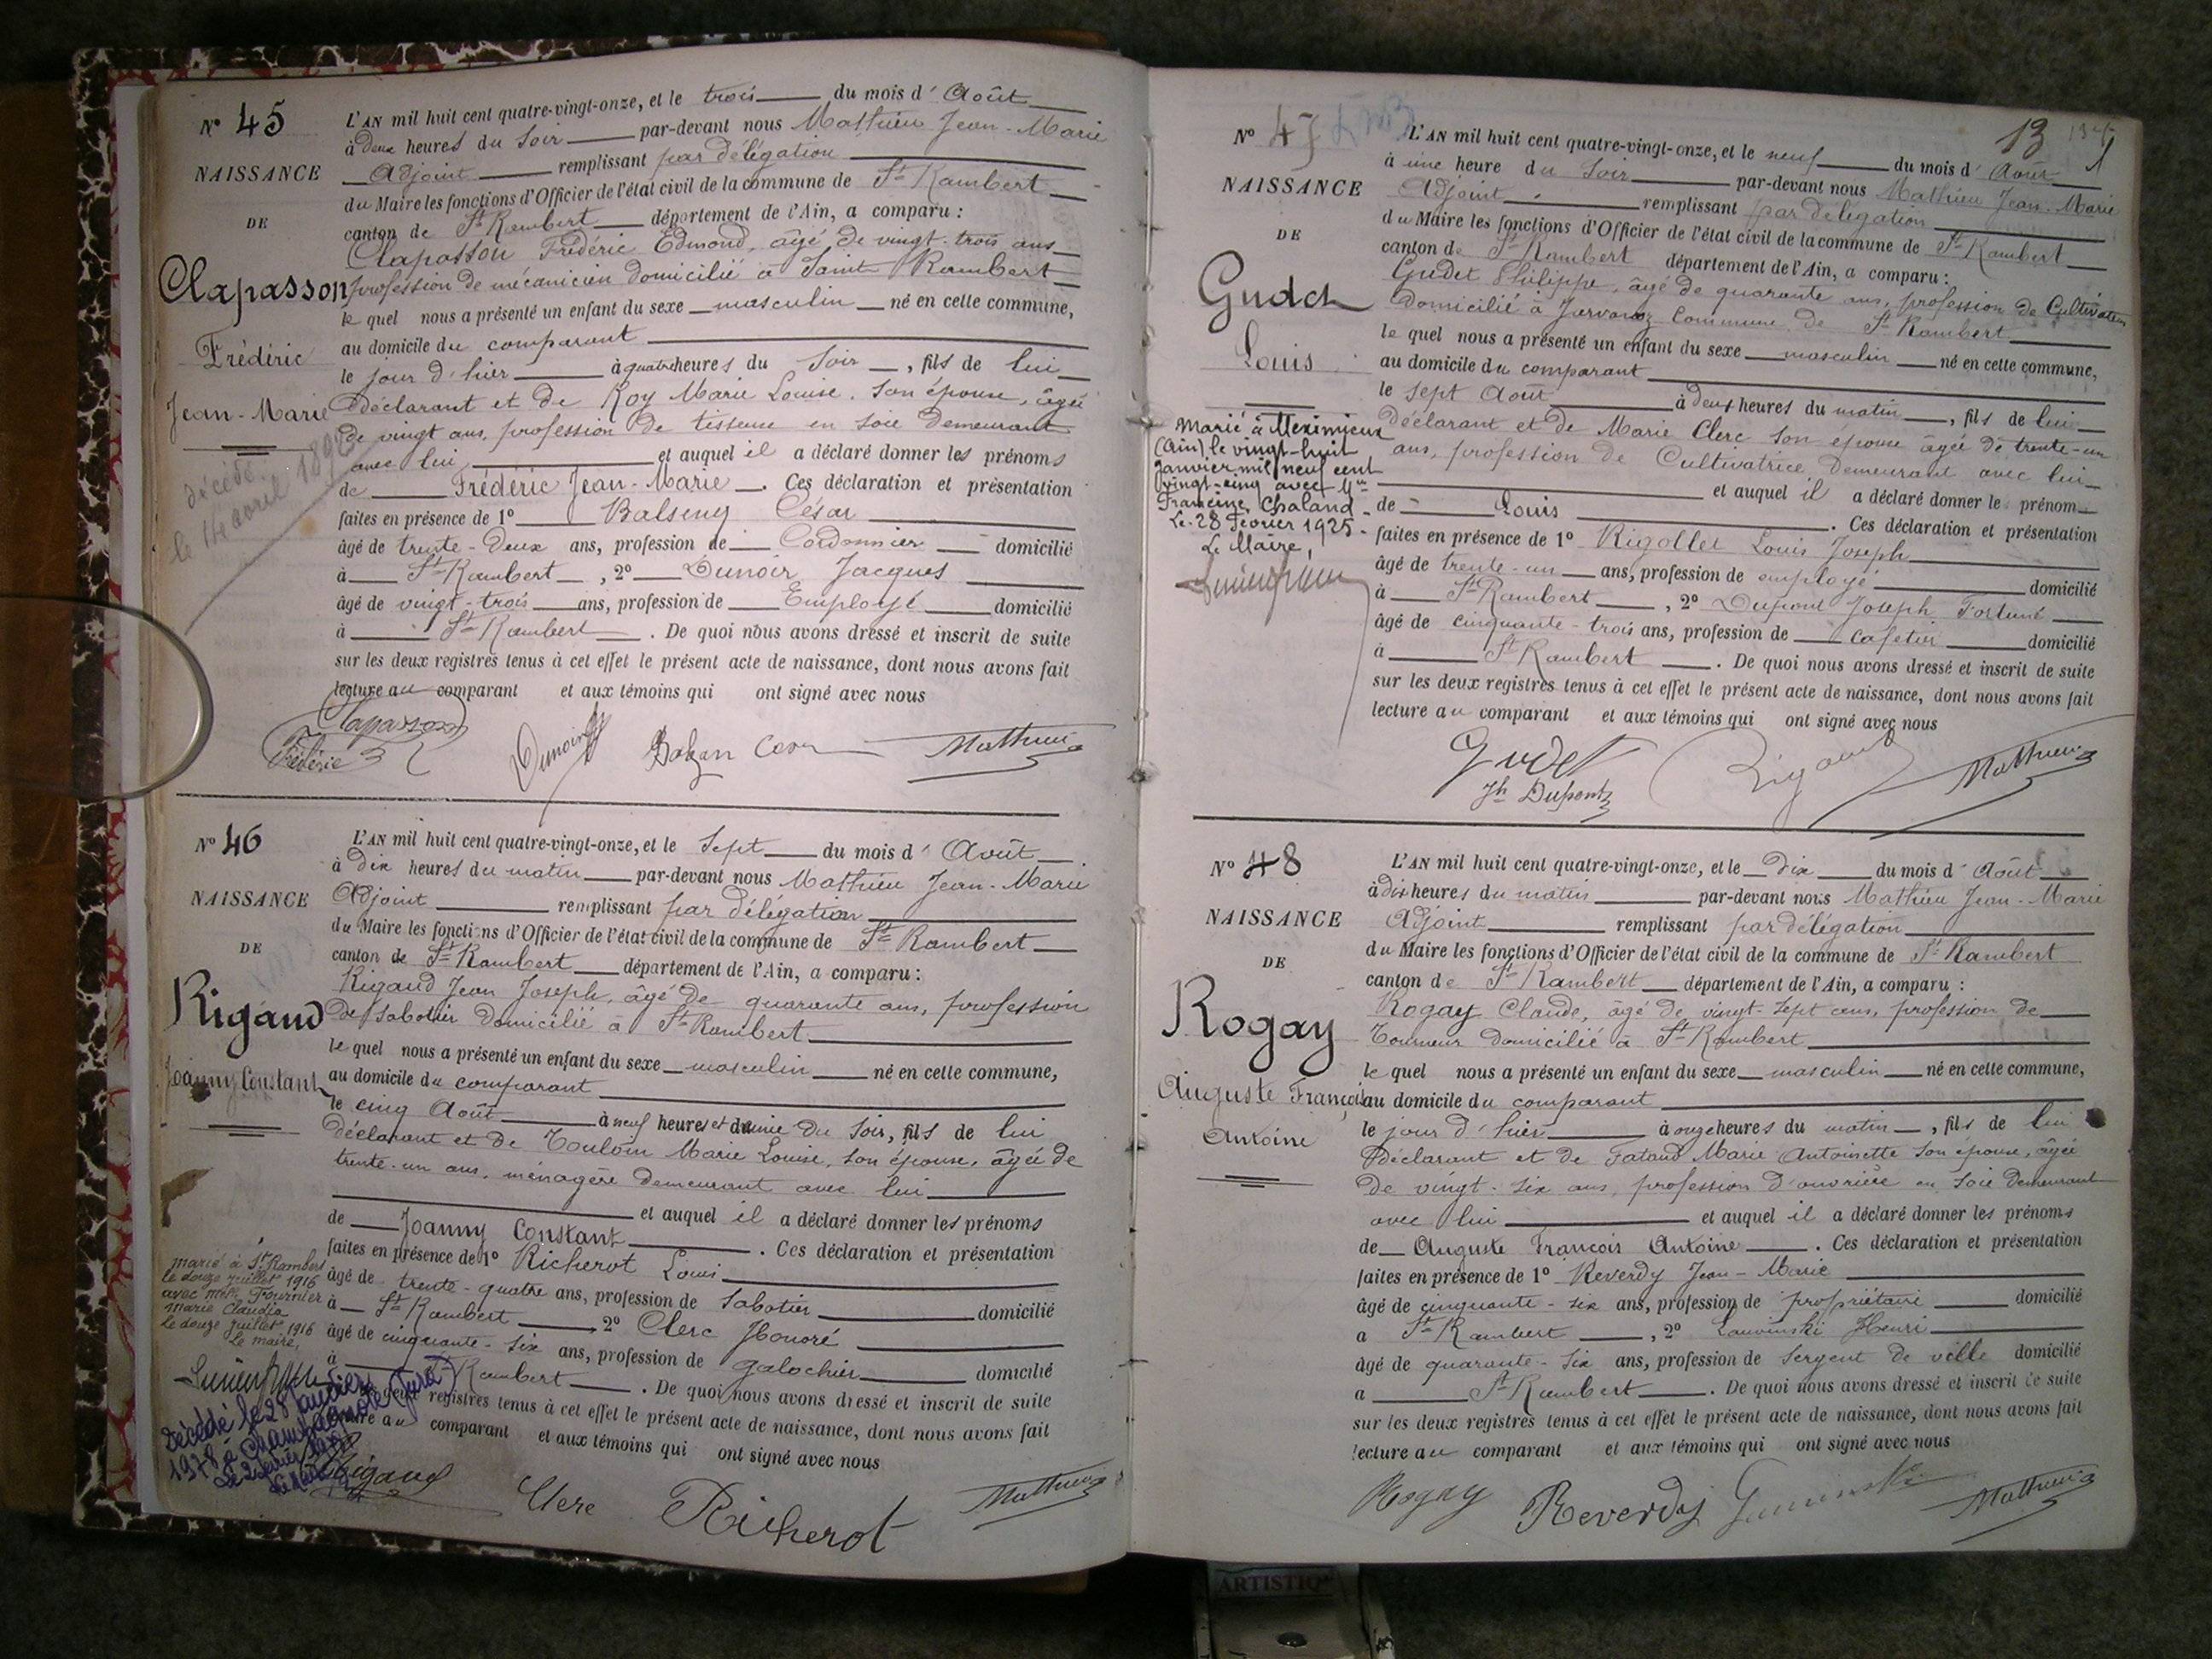 N° 45
NAISSANCE
DE
Clapasson
Frédéric
Jean-Marie
décédé
le 14 avril 1892
L'AN mil huit cent quatre-vingt-onze, et le trois du mois d' Août
à deux heures du Soir par-devant nous Mathieu Jean-Marie
Adjoint remplissant par délégation
du Maire les fonctions d'Officier de l'état civil de la commune de St Rambert
canton de St Rambert département de l'Ain, a comparu :
Clapasson Frédéric Edmond, âgé de vingt-trois ans
profession de mécanicien domicilié à Saint Rambert
le quel nous a présenté un enfant du sexe masculin né en cette commune,
au domicile du comparant
le jour d'hier à quatre heures du Soir, fils de lui
déclarant et de Roy Marie Louise, son épouse, âgée
de vingt ans, profession de tisseuse en soie demeurant
avec lui et auquel il a déclaré donner les prénoms
de Frédéric Jean-Marie. Ces déclaration et présentation
faites en présence de 1° César
âgé de trente-deux ans, profession de Cordonnier domicilié
à St Rambert, 2° Dunoir Jacques
âgé de vingt-trois ans, profession de Employé domicilié
à St Rambert. De quoi nous avons dressé et inscrit de suite
sur les deux registres tenus à cet effet le présent acte de naissance, dont nous avons fait
lecture au comparant et aux témoins qui ont signé avec nous
Clapasson
Frédéric
Dunoir
Mathieu
N° 46
NAISSANCE
DE
Rigaud
Joanny Constant
L'AN mil huit cent quatre-vingt-onze, et le Sept du mois d' Août
à dix heures du matin par-devant nous Mathieu Jean-Marie
Adjoint remplissant par délégation
du Maire les fonctions d'Officier de l'état civil de la commune de St Rambert
canton de St Rambert département de l'Ain, a comparu :
Rigaud Jean Joseph, âgé de quarante ans, profession
de Sabotier domicilié à St Rambert
le quel nous a présenté un enfant du sexe masculin né en cette commune,
au domicile du comparant
le cinq Août à neuf heures et demie du Soir, fils de lui
déclarant et de Marie Louise, son épouse, âgée de
trente-un ans, ménagère demeurant avec lui
et auquel il a déclaré donner les prénoms
de Joanny Constant. Ces déclaration et présentation
faites en présence de 1° Richerot Louis
âgé de trente-quatre ans, profession de Sabotier domicilié
à St Rambert 2° Clerc Honoré
âgé de cinquante-six ans, profession de galochier domicilié
à St Rambert. De quoi nous avons dressé et inscrit de suite
registres tenus à cet effet le présent acte de naissance, dont nous avons fait
lecture au comparant et aux témoins qui ont signé avec nous
marié à St Rambert
le douze juillet 1916
avec Melle Fournier
Marie Claudia
le douze juillet 1916
Le maire,
Décédé le 28 Janvier
1978 à Champagnole (Jura)
Rigaud
Clerc
Richerot
Mathieu
13
N° 47
NAISSANCE
DE
Gudet
Louis
Marié à Meximieux
(Ain) le vingt-huit
Janvier mil neuf cent
vingt-cinq avec Mlle
Francine Chaland
Le 28 Février 1925
Le Maire,
L'AN mil huit cent quatre-vingt-onze, et le neuf du mois d' Août
à une heure du Soir par-devant nous Mathieu Jean-Marie
Adjoint remplissant par délégation
du Maire les fonctions d'Officier de l'état civil de la commune de St Rambert
canton de St Rambert département de l'Ain, a comparu :
Gudet Philippe, âgé de quarante ans, profession de Cultivateur
domicilié à Commune de St Rambert
le quel nous a présenté un enfant du sexe masculin né en cette commune,
au domicile du comparant
le sept Août à deux heures du matin, fils de lui
déclarant et de Marie Clerc son épouse âgée de trente-un
ans, profession de Cultivatrice demeurant avec lui
et auquel il a déclaré donner le prénom
de Louis. Ces déclaration et présentation
faites en présence de 1° Rigollet Louis Joseph
âgé de trente-un ans, profession de employé domicilié
à St Rambert, 2° Dupont Joseph Fortuné
âgé de cinquante-trois ans, profession de cafetier domicilié
à St Rambert. De quoi nous avons dressé et inscrit de suite
sur les deux registres tenus à cet effet le présent acte de naissance, dont nous avons fait
lecture au comparant et aux témoins qui ont signé avec nous
Gudet
Jh Dupont
Mathieu
N° 48
NAISSANCE
DE
Rogay
Auguste François
Antoine
L'AN mil huit cent quatre-vingt-onze, et le dix du mois d' Août
à dix heures du matin par-devant nous Mathieu Jean-Marie
Adjoint remplissant par délégation
du Maire les fonctions d'Officier de l'état civil de la commune de St Rambert
canton de St Rambert département de l'Ain, a comparu :
Rogay Claude, âgé de vingt-sept ans, profession de
Tourneur domicilié à St Rambert
le quel nous a présenté un enfant du sexe masculin né en cette commune,
au domicile du comparant
le jour d'hier à onze heures du matin, fils de lui
déclarant et de Fataud Marie Antoinette son épouse, âgée
de vingt-six ans, profession d'ouvrière en soie demeurant
avec lui et auquel il a déclaré donner les prénoms
de Auguste François Antoine. Ces déclaration et présentation
faites en présence de 1° Reverdy Jean-Marie
âgé de cinquante-six ans, profession de propriétaire domicilié
a St Rambert, 2° Henri
âgé de quarante-six ans, profession de Sergent de ville domicilié
a St Rambert. De quoi nous avons dressé et inscrit de suite
sur les deux registres tenus à cet effet le présent acte de naissance, dont nous avons fait
lecture au comparant et aux témoins qui ont signé avec nous
Rogay
Reverdy
Mathieu
ARTISTIQ